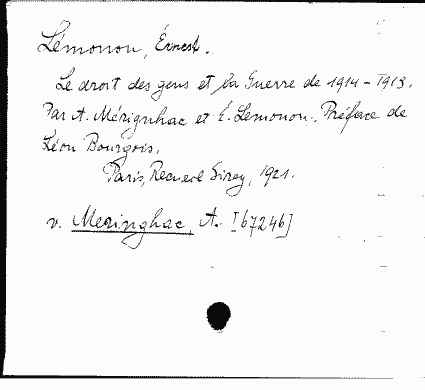 Lémonon, Ernest.
Le droit des gens et la Guerre de 1914-1918.
Par A. Mérignhac et E. Lemonon. Préface de
Léon Bourgois,
Paris, Recueil Sirey, 1921.
v. Meringhac, A. I67246]